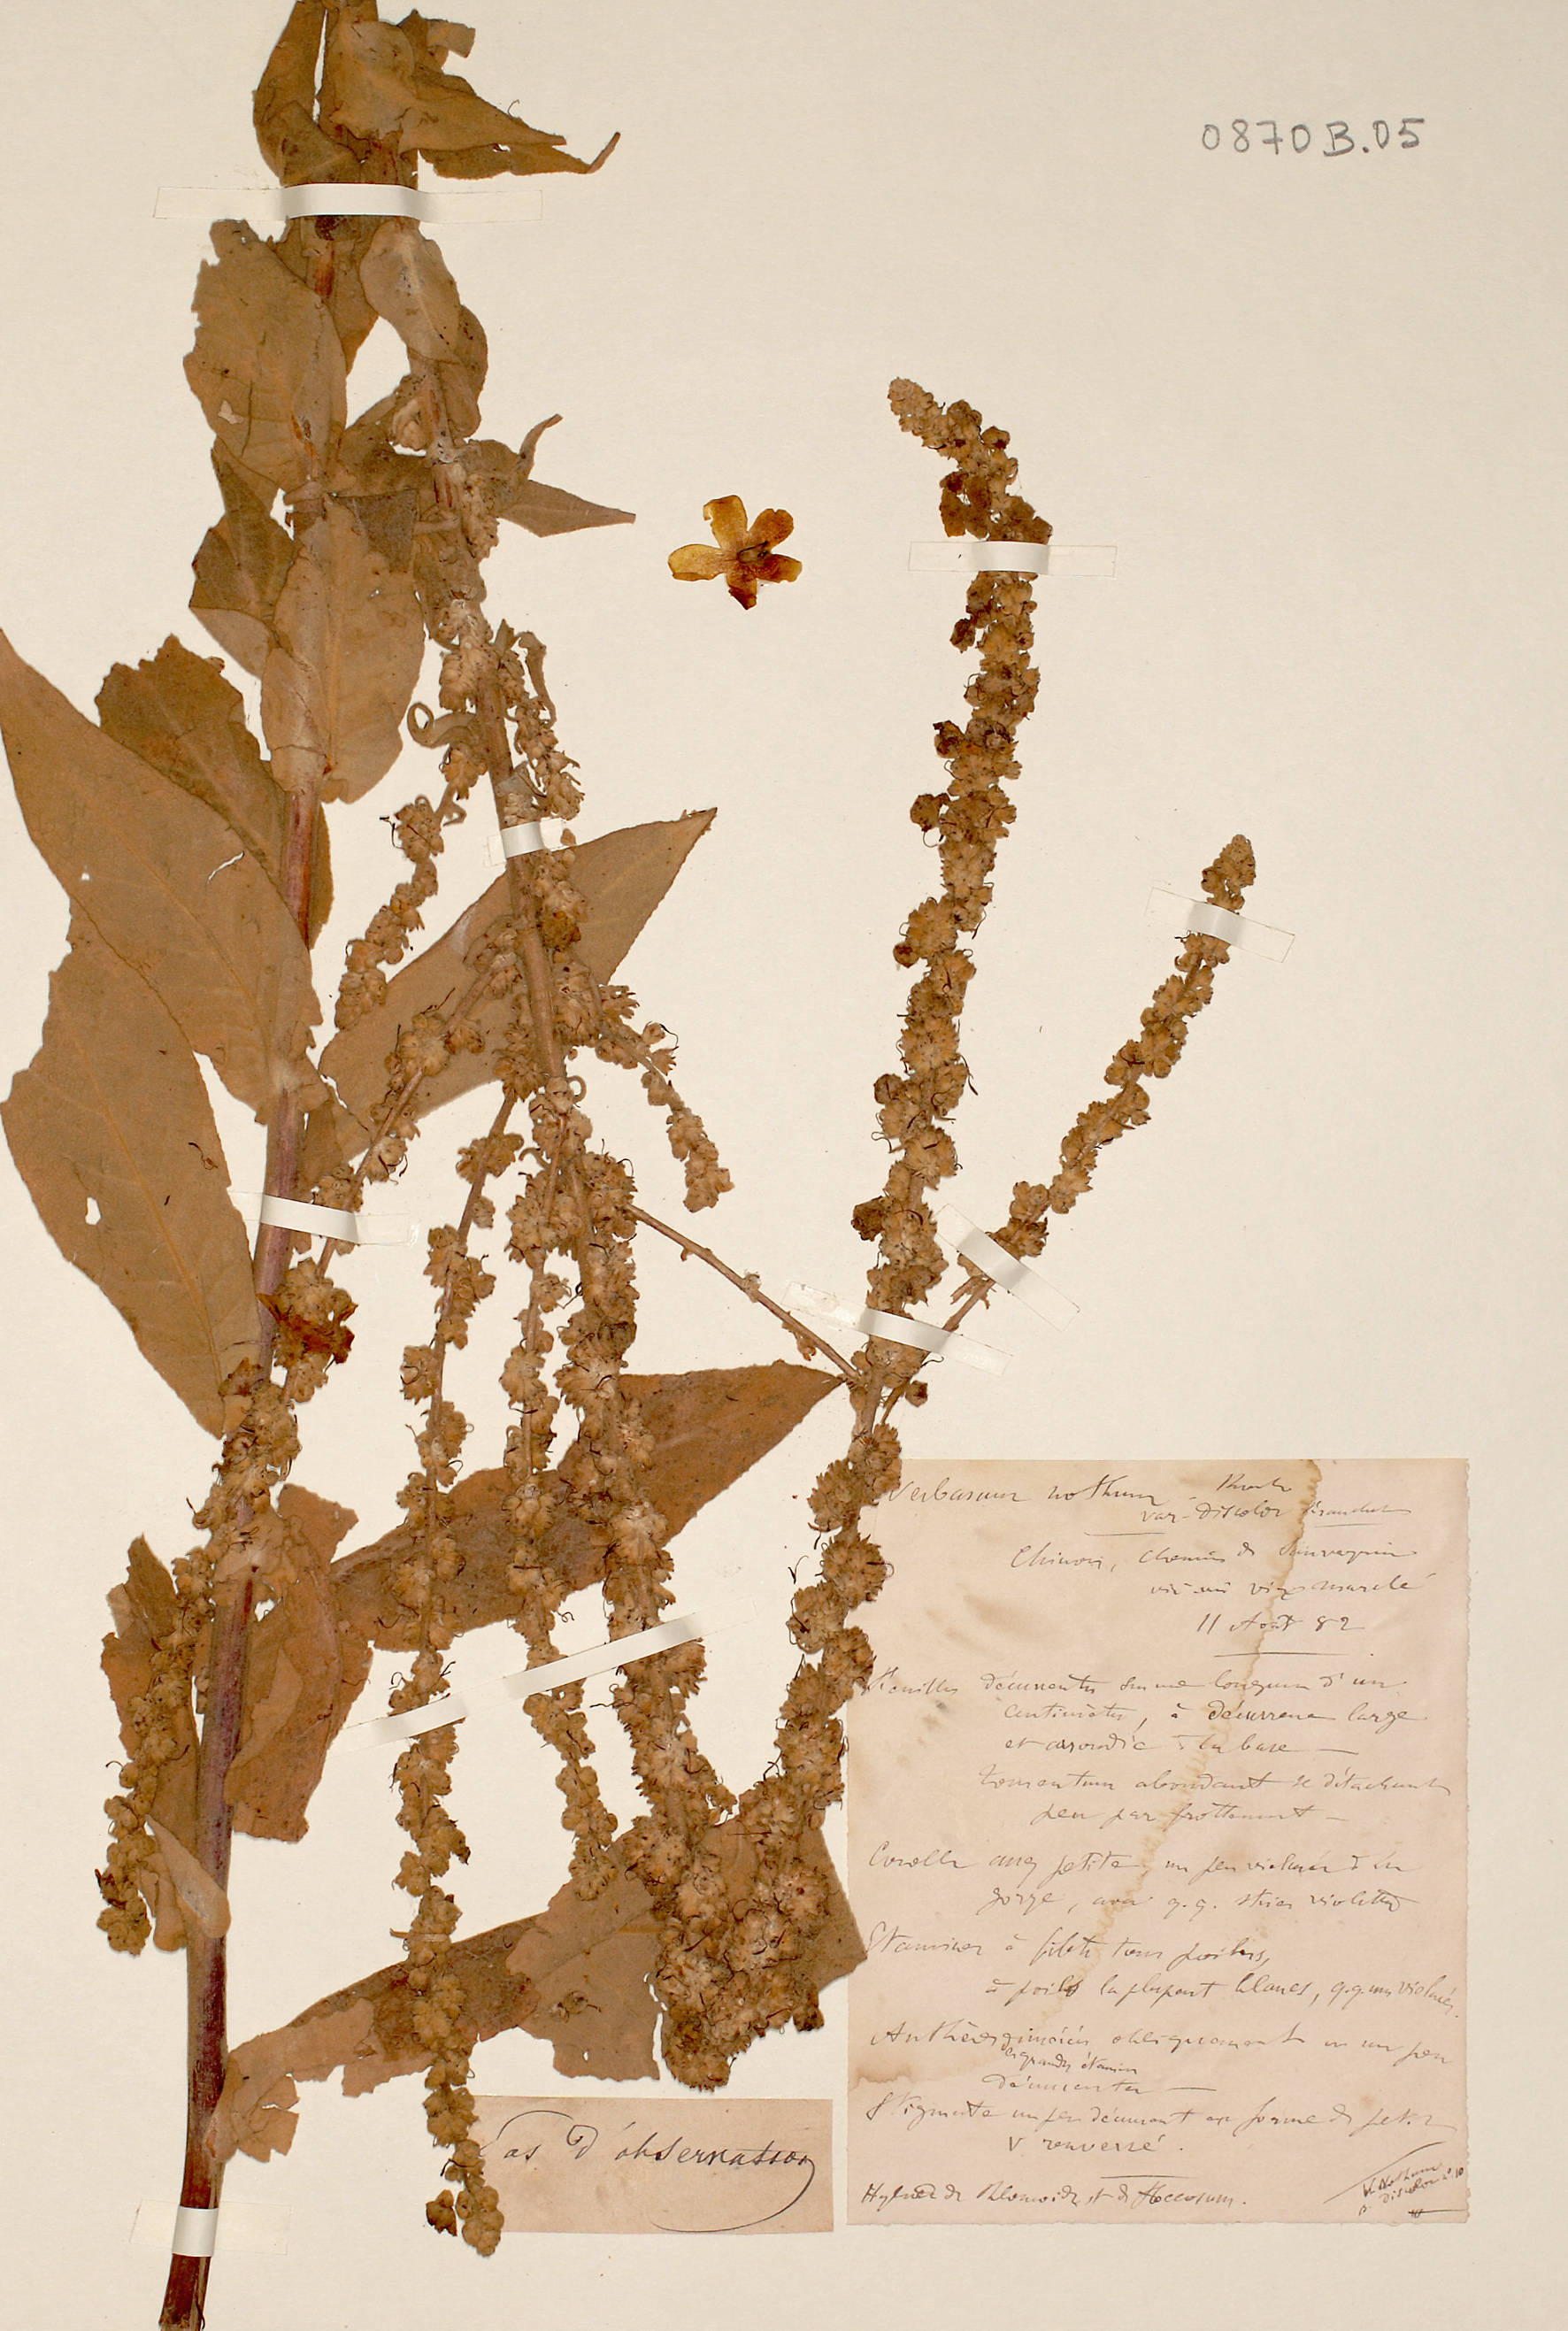 0870B.05
Verbascum nothum Koch
var. Discolor Franchet
Chinon, chemin de
vis-à-vis
11 Août 82
Feuilles décurrentes sur une longueur d'un
centimètre, à décurrence large
et arrondie à la base —
tomentum abondant se détachant
peu par frottement —
Corolle assez petite, un peu violacée à la
gorge, avec q.q. stries violettes
Etamines à filets tous poilus,
à poils la plupart blancs, q.q. uns violacés.
Anthères obliquement un peu
les grandes étamines
décurrentes —
Stigmate un peu décurrent en forme de petit
V renversé.
Hybride de Phlomoides et de floccosum.
V. Nothum
β. Discolor n° 10
Pas d'observation